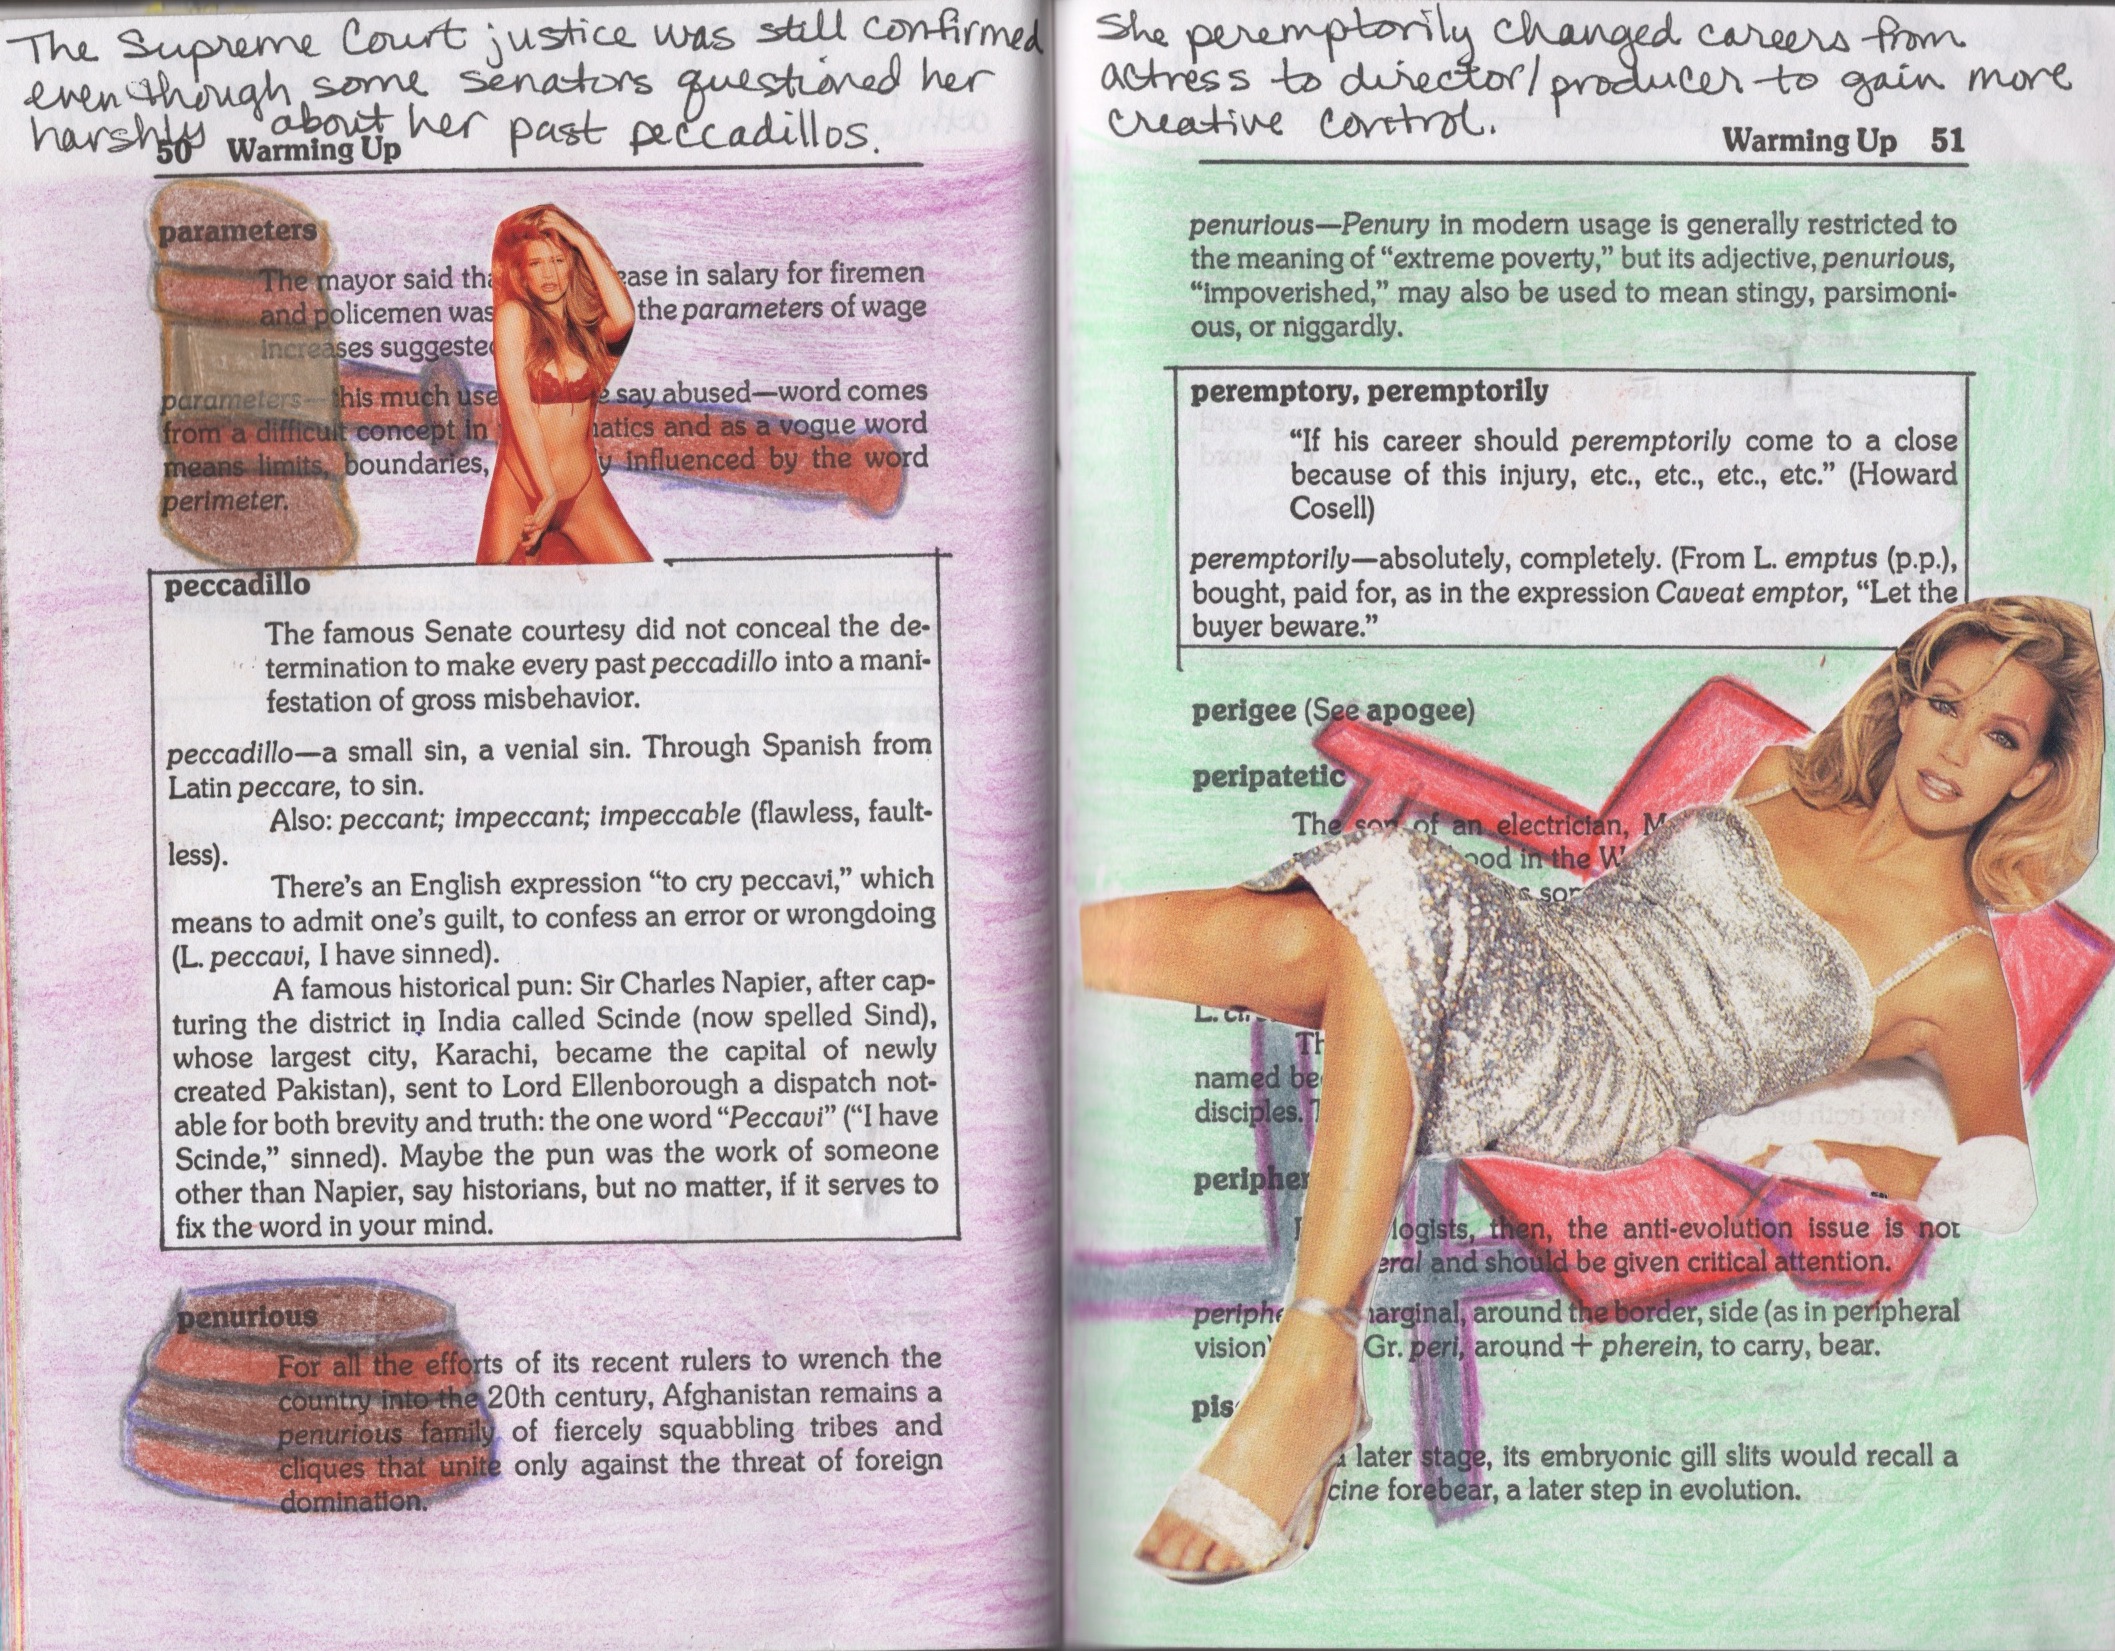 The Supreme Court justice was still confirmed
even though some senators questioned her
harshly about her past peccadillos.
50 Warming Up
parameters
The mayor said tha ease in salary for firemen
and policemen was the parameters of wage
increases suggested
parameters—this much use e say abused—word comes
from a difficult concept in atics and as a vogue word
means limits, boundaries, y influenced by the word
perimeter.
peccadillo
The famous Senate courtesy did not conceal the de-
termination to make every past peccadillo into a mani-
festation of gross misbehavior.
peccadillo—a small sin, a venial sin. Through Spanish from
Latin peccare, to sin.
Also: peccant; impeccant; impeccable (flawless, fault-
less).
There's an English expression “to cry peccavi,” which
means to admit one's guilt, to confess an error or wrongdoing
(L. peccavi, I have sinned).
A famous historical pun: Sir Charles Napier, after cap-
turing the district in India called Scinde (now spelled Sind),
whose largest city, Karachi, became the capital of newly
created Pakistan), sent to Lord Ellenborough a dispatch not-
able for both brevity and truth: the one word “Peccavi” (“I have
Scinde,” sinned). Maybe the pun was the work of someone
other than Napier, say historians, but no matter, if it serves to
fix the word in your mind.
penurious
For all the efforts of its recent rulers to wrench the
country into the 20th century, Afghanistan remains a
penurious family of fiercely squabbling tribes and
cliques that unite only against the threat of foreign
domination.
She peremptorily changed careers from
actress to director/producer to gain more
creative control.
Warming Up 51
penurious—Penury in modern usage is generally restricted to
the meaning of “extreme poverty,” but its adjective, penurious,
“impoverished,” may also be used to mean stingy, parsimoni-
ous, or niggardly.
peremptory, peremptorily
“If his career should peremptorily come to a close
because of this injury, etc., etc., etc., etc.” (Howard
Cosell)
peremptorily—absolutely, completely. (From L. emptus (p.p.),
bought, paid for, as in the expression Caveat emptor, “Let the
buyer beware.”
perigee (See apogee)
peripatetic
The son of an electrician, M
ood in the W
s so
L.
Th
named be
disciples. T
peripher
logists, then, the anti-evolution issue is not
eral and should be given critical attention.
periphe marginal, around the border, side (as in peripheral
vision) Gr. peri, around + pherein, to carry, bear.
pis
a later stage, its embryonic gill slits would recall a
cine forebear, a later step in evolution.